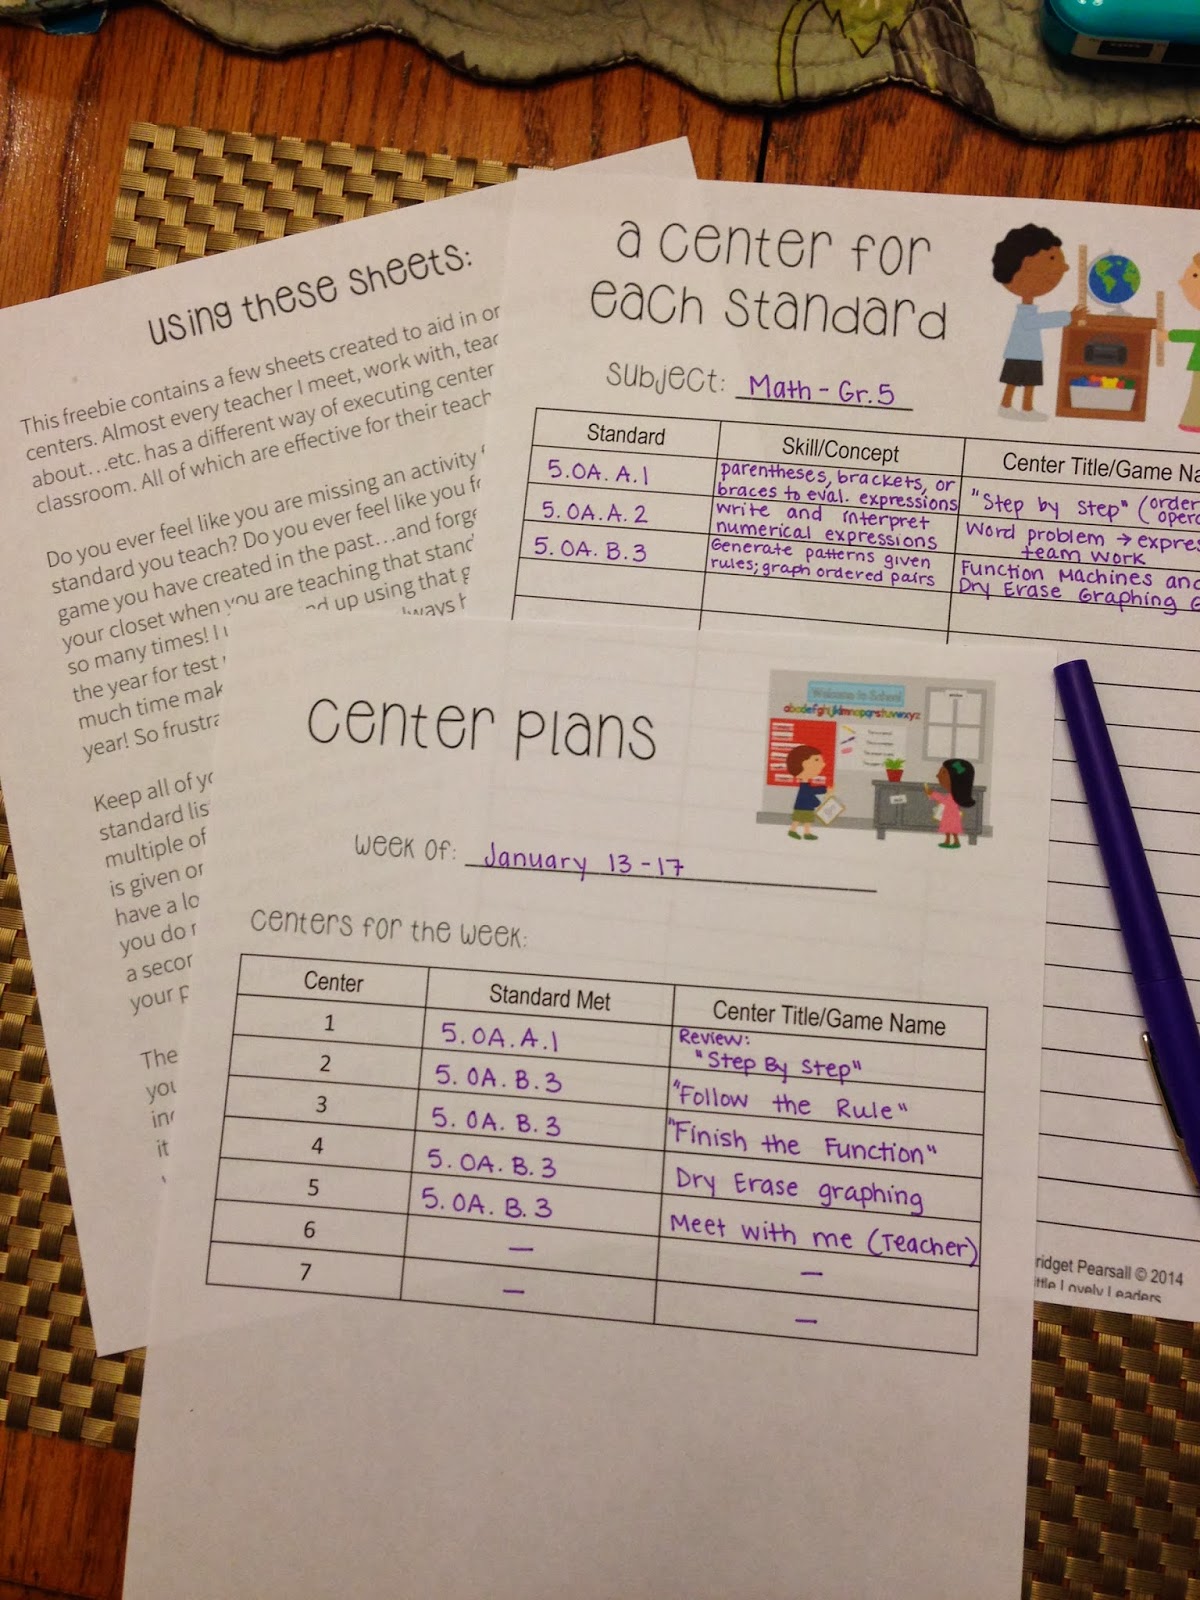 using these sheets:
This freebie contains a few sheets created to aid in
centers. Almost every teacher I meet, work with,
about…etc. has a different way of executing center
classroom. All of which are effective for their
Do you ever feel like you are missing an activity
standard you teach? Do you ever feel like you
game you have created in the past…and
your closet when you are teaching that
so many times! I
up using that
the year for test
much time
year! So
Keep all of
standard
multiple of
is given
have a
you do
a
your
The
it
a center for
each standard
subject: Math - Gr. 5
Standard Skill/Concept Center Title/Game
5.OA.A.1 parentheses, brackets, or
braces to eval. expressions "Step by Step" (order
5.OA.A.2 write and interpret
numerical expressions Word problem →
team work
5.OA.B.3 Generate patterns given
rules; graph ordered pairs Function Machines and
Dry Erase Graphing
center plans
Welcome to School
abcdefghijklmnopqrstuvwxyz
week of: January 13-17
centers for the week:
Center Standard Met Center Title/Game Name
1 5.OA.A.1 Review:
"Step By Step"
2 5.OA.B.3 "Follow the Rule"
3 5.OA.B.3 "Finish the Function"
4 5.OA.B.3 Dry Erase graphing
5 5.OA.B.3 Meet with me (Teacher)
6 — —
7 — —
Pearsall © 2014
Lovely Leaders